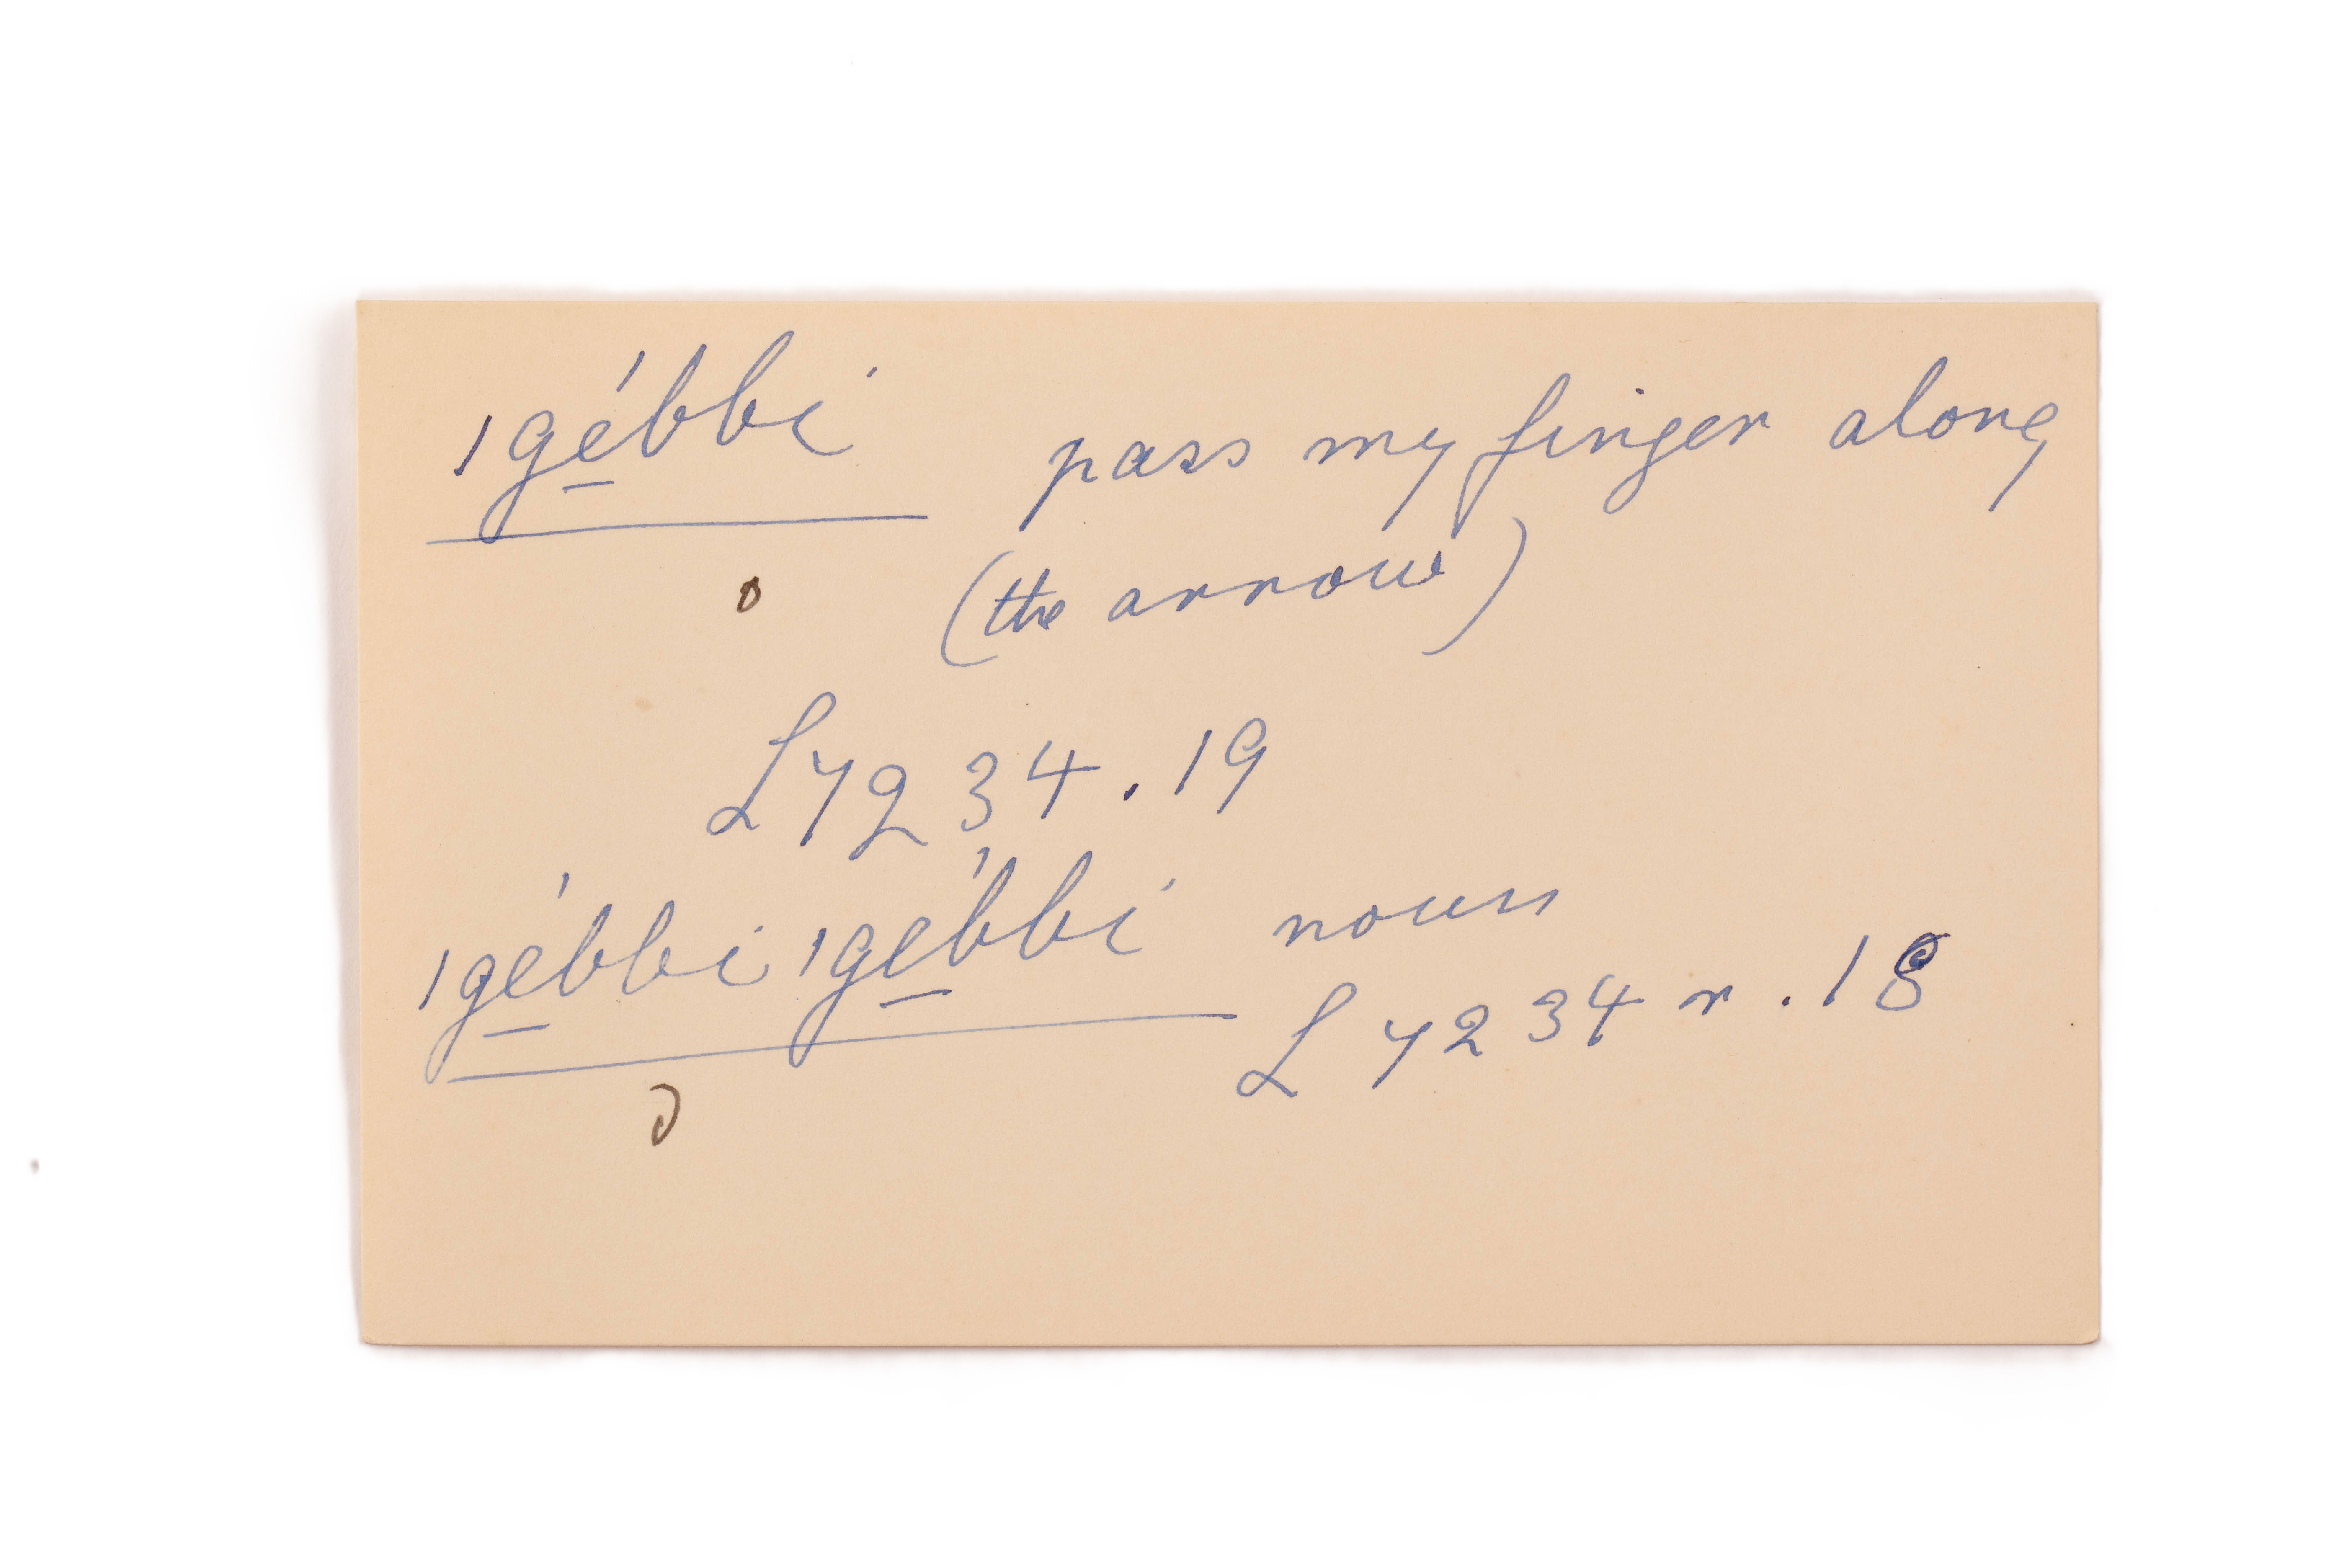 ǀgé̠bbi pass my finger along
(the arrow)
L7234.19
ǀgé̠bbi ǀgé̠bbi noun
L7234 r.18